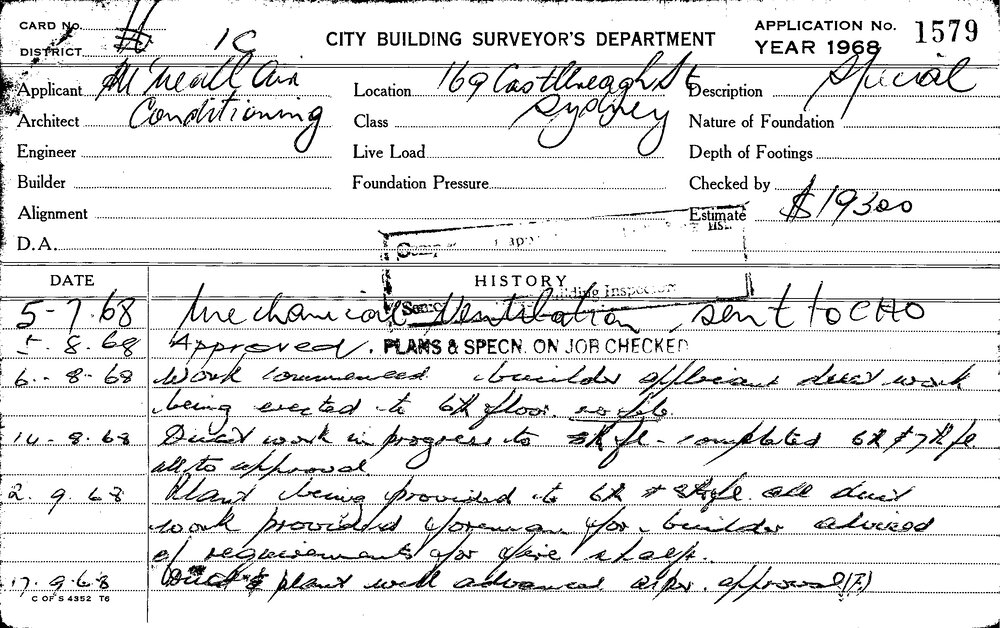 CARD No.
DISTRICT # 1C
CITY BUILDING SURVEYOR'S DEPARTMENT
APPLICATION No. 1579
YEAR 1968
Applicant McNeall Air
Location 169 Castlereagh St
Description Special
Architect Conditioning
Class Sydney
Nature of Foundation
Engineer
Live Load
Depth of Footings
Builder
Foundation Pressure
Checked by
Alignment
Estimate $19300
D.A.
DATE HISTORY
Building Inspector
5-7.68 Mechanical Ventilation, sent to CHO
8.68 Approved. PLANS & SPECN. ON JOB CHECKED
6.-8-68 Work commenced builder applicant duct work
being erected to 6th floor.
14-8.68 Duct work in progress to fl- completed 6th & 7th fl
all to approval
2.9.68 Plant being provided to 6th & 8th fl. all duct
work provided foreman for builder advised
of requirements for fire shaft.
17.9.68 Duct & plant well advanced as per approval (F.)
C OF S 4352 T6